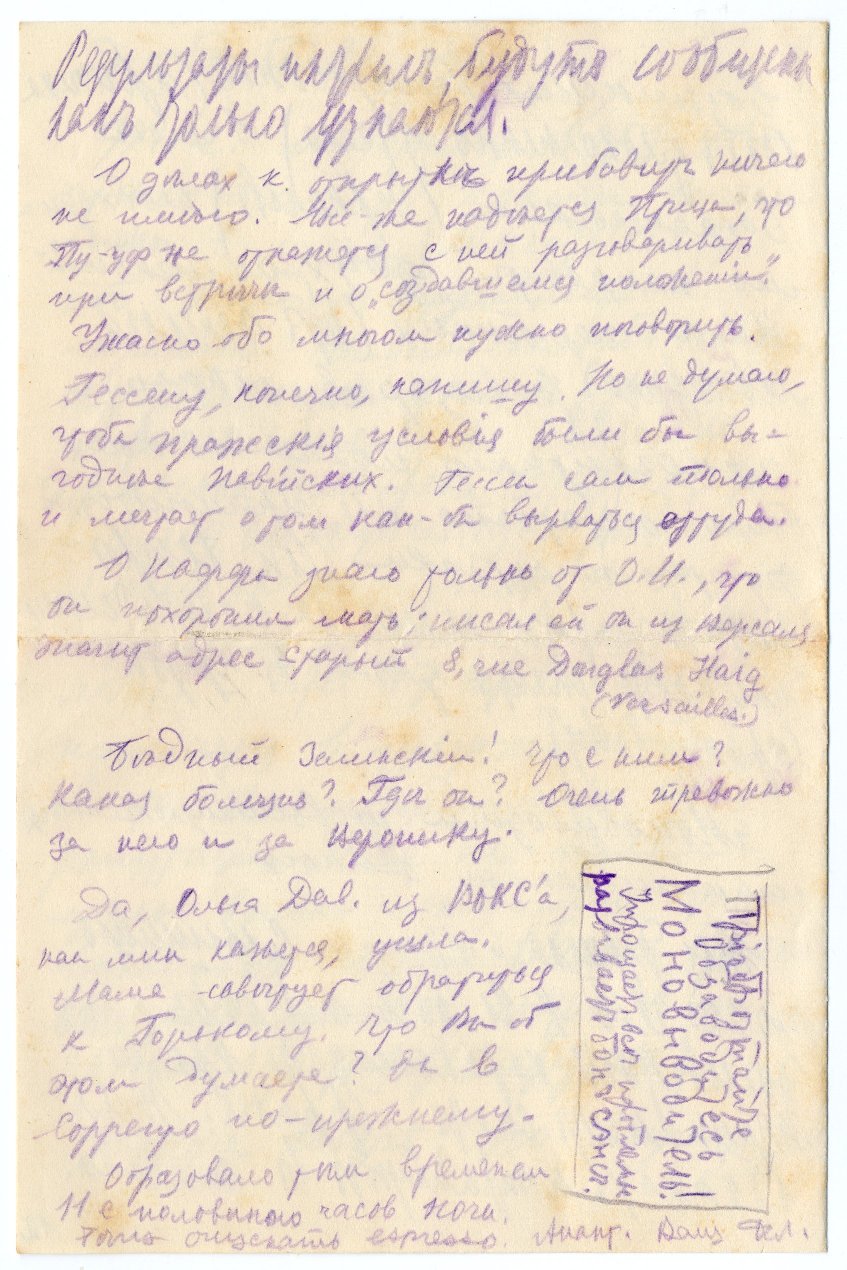 Результаты будутъ сообщены
какъ только узнаются.
О дѣлах к. открытки прибавить ничего
не имѣю. Все-же надѣется Прица, что
Ту-уф не откажется с ней разговаривать
при встрѣчѣ и о „создавшемся положеніи".
Ужасно обо многом нужно поговорить.
Гессену, конечно, напишу. Но не думаю,
чтобы пражскія условія были бы вы-
годнѣе павійских. Гессен сам только
и мечтает о том как-бы вырваться оттуда.
О Каффи знаю только от О.И., что
он похоронил мать; писал ей он из Версаля
значит адрес старый 8, rue Douglas Haig
(Versailles.)
Бѣдный Зелинскій! Что с ним?
Какая болѣзнь? Гдѣ он? Очень тревожно
за него и за Веронику.
Да, Ольга Дав. из ВОКС'а,
как мнѣ кажется, ушла.
Мама совѣтует обратиться
к Горькому. Что Вы об
этом думаете? Он в
Сорренто по-прежнему.
Образовало тѣм временем
11 с половиною часов ночи.
опускать espresso. Ваш
обзаводитесь
Моновыводитель!
Упрощает всѣ проблемы
развивает бонъ-сансъ.